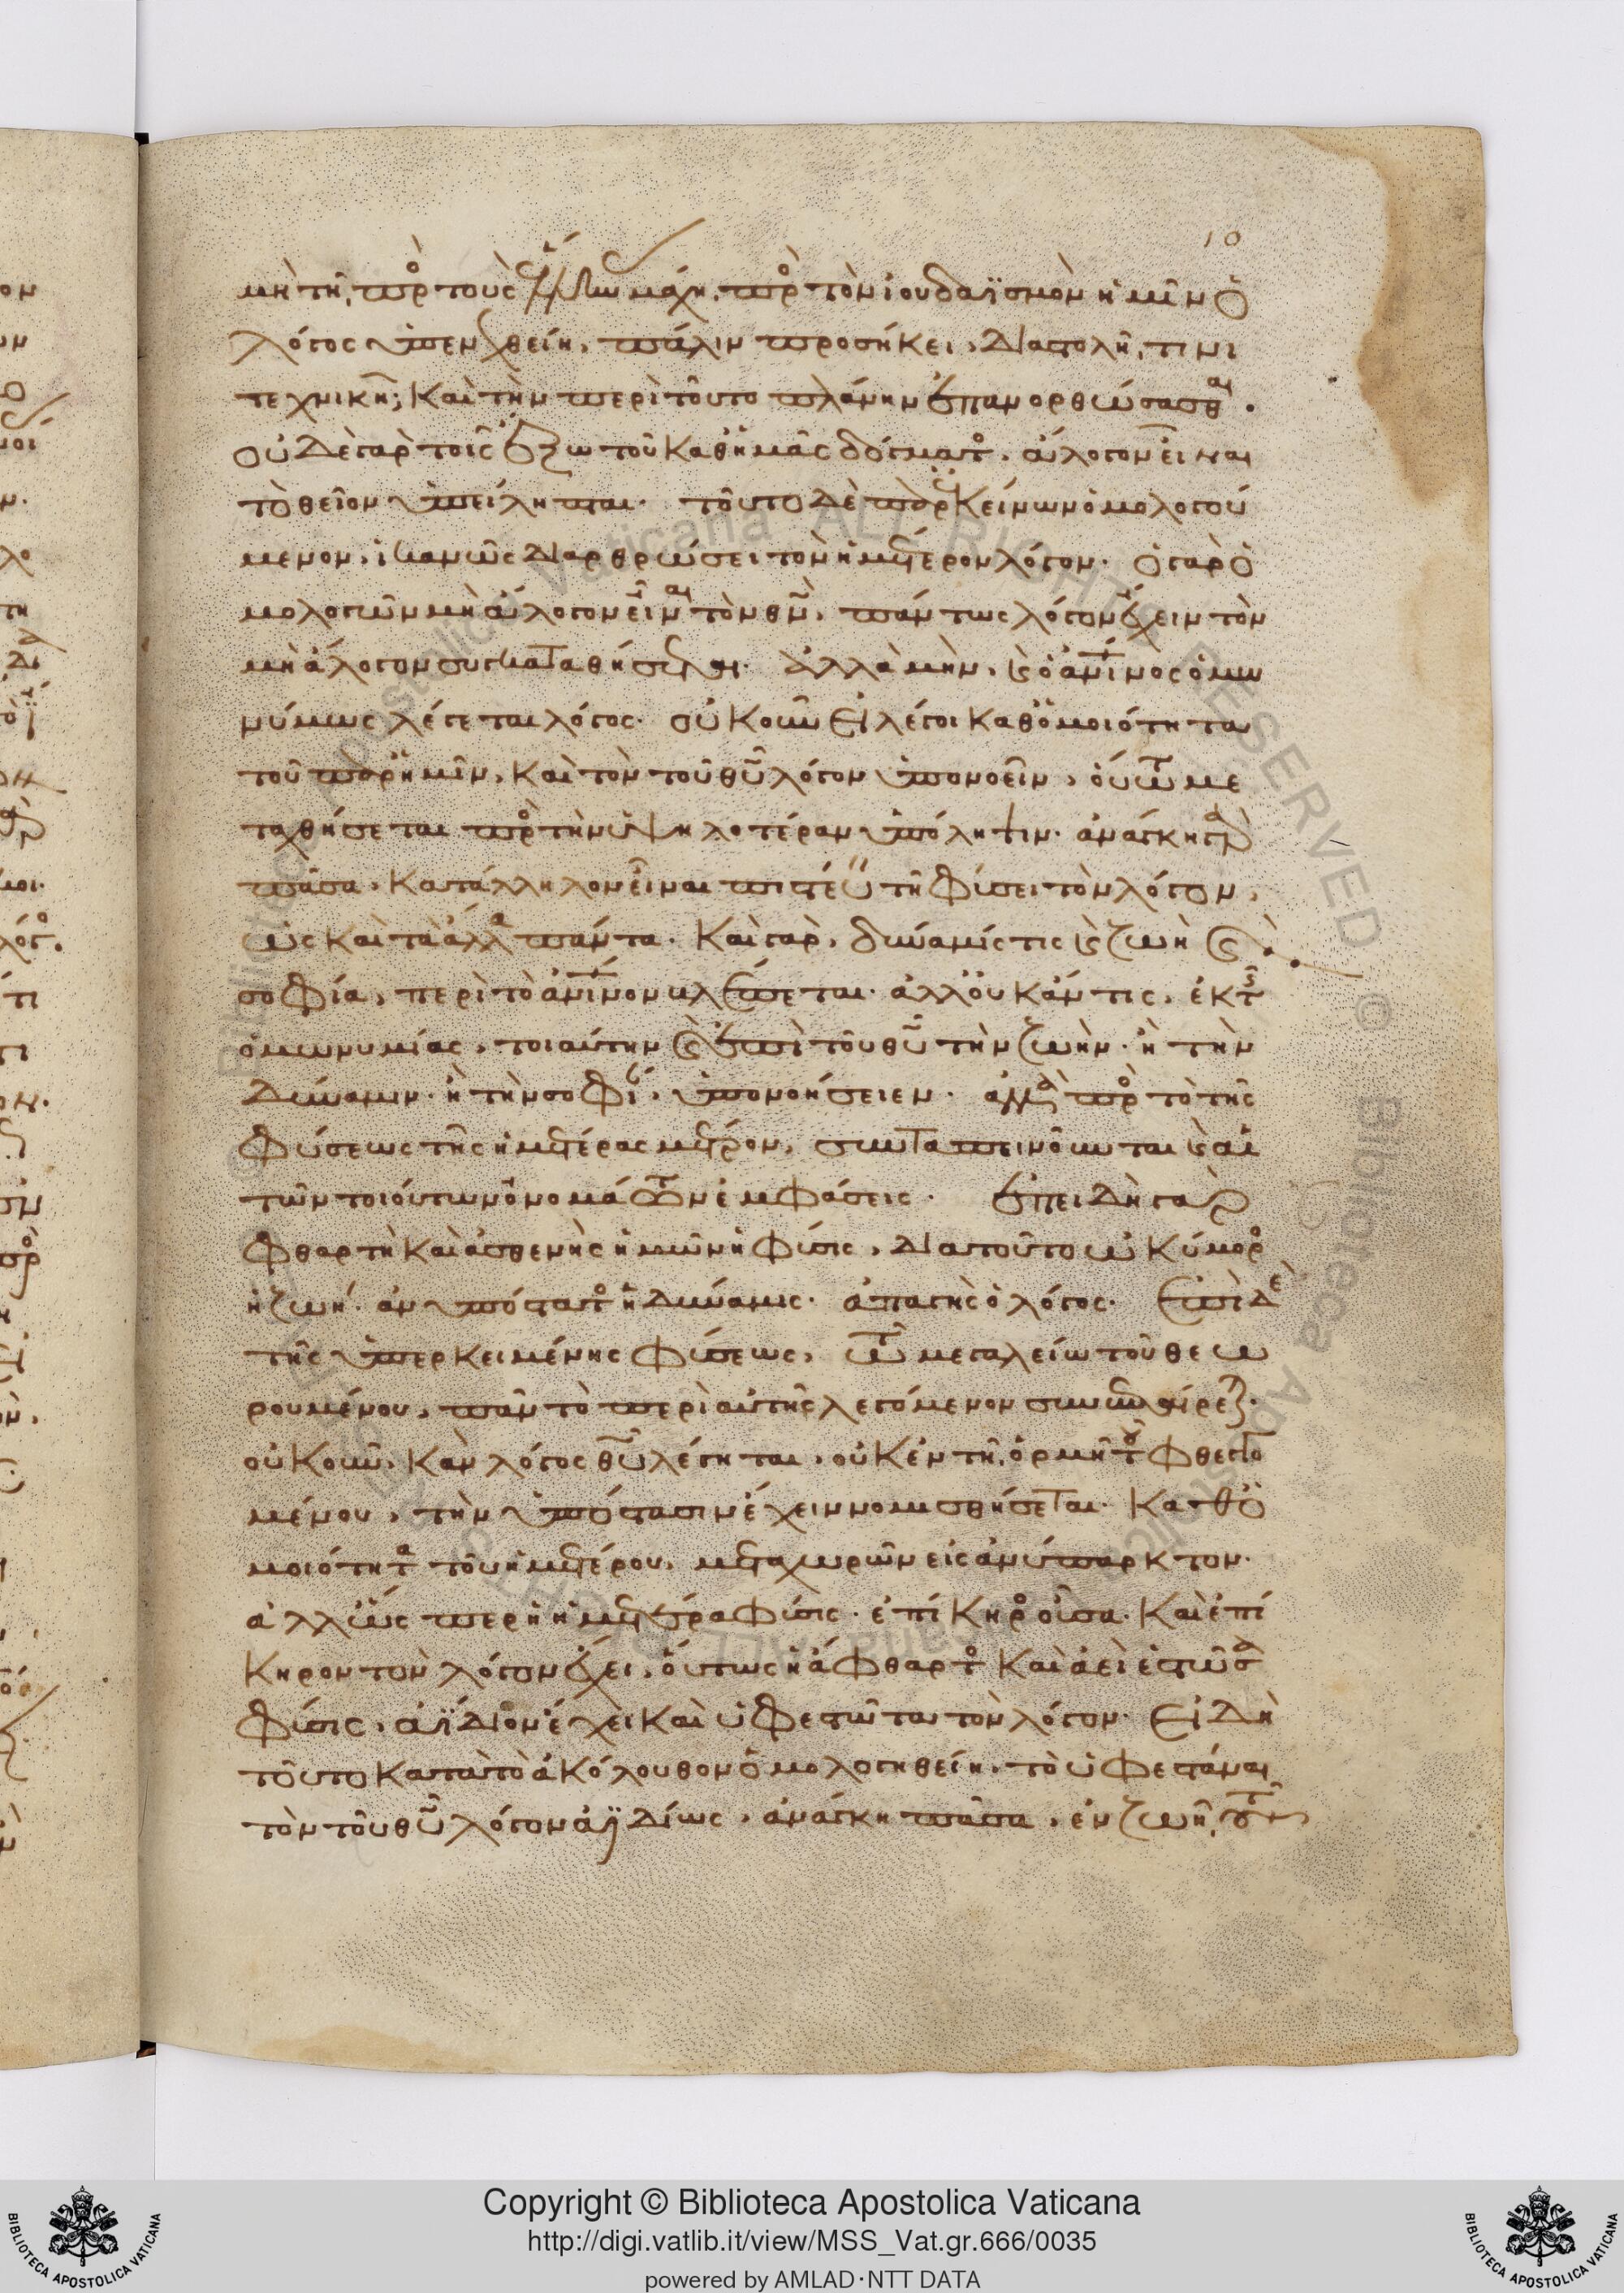 10
μὴ τῆ πρὸς τοὺς ἕλληνας μάχη, πρὸς τὸν ἰουδαϊσμὸν ἡμῖν ὁ
λόγος ὑπενεχθείη, πάλιν προσήκει, διαστολῆ τινι
τεχνικῆ, καὶ τὴν περὶ τοῦτο πλάνην ἐπανορθώσασθαι.
οὐδὲ γὰρ τοῖς ἔξω τοῦ καθ' ἡμᾶς δόγματος, ἄλογον εἶναι
τὸ θεῖον ὑπείληπται. τοῦτο δὲ παρ' ἐκείνων ὁμολογού
μενον, ἱκανῶς διαρθρώσει τὸν ἡμέτερον λόγον. ὁ γὰρ ὁ
μολογῶν μὴ ἄλογον εἶναι τὸν θν, πάντως λόγον ἔχειν τὸν
μὴ ἄλογον συγκαταθήσεται. ἀλλὰ μὴν, καὶ ὁ ἀνινος ὁμω
νύμως λέγεται λόγος. οὐκοῦν εἰ λέγοι καθ' ὁμοιότητα
τοῦ παρ' ἡμῖν, καὶ τὸν τοῦ θυ λόγον ὑπονοεῖν, οὕτω με
ταχθήσεται πρὸς τὴν ὑψηλοτέραν ὑπόληψιν. ἀνάγκη γὰρ
πᾶσα, κατάλληλον εἶναι πιστεύειν τῆ φύσει τὸν λόγον,
ὡς καὶ τὰ ἄλλα πάντα. καὶ γὰρ, δύναμίς τις καὶ ζωὴ καὶ
σοφία, περὶ τὸ ἀνινον βλέπεται. ἀλλ' οὐκ ἄν τις, ἐκ τῆς
ὁμωνυμίας, τοιαύτην καὶ ἐπὶ τοῦ θυ τὴν ζωὴν. ἢ τὴν
δύναμιν. ἢ τὴν σοφίαν, ὑπονοήσειεν. ἀλλὰ πρὸς τὸ τῆς
φύσεως τῆς ἡμετέρας μέτρον, συνταπεινοῦνται καὶ αἱ
τῶν τοιούτων ὀνομάτων ἐμφάσεις. ἐπειδὴ γὰρ
φθαρτὴ καὶ ἀσθενὴς ἡμῶν ἡ φύσις, διατοῦτο ὠκύμορος
ἡ ζωή. ἀνυπόστατος ἡ δύναμις. ἀπαγὴς ὁ λόγος. ἐπὶ δὲ
τῆς ὑπερκειμένης φύσεως, τῶ μεγαλείω τοῦ θεω
ρουμένου, πᾶν τὸ περὶ αὐτῆς λεγόμενον συνεπαίρεται.
οὐκοῦν, κἂν λόγος θυ λέγηται, οὐκ ἐν τῆ ὁρμῆ τοῦ φθεγγο
μένου, τὴν ὑπόστασιν ἔχειν νομισθήσεται. καθ' ὁ
μοιότητα τοῦ ἡμετέρου, μεταχωρῶν εἰς ἀνύπαρκτον.
ἀλλ' ὥσπερ ἡ ἡμετέρα φύσις. ἐπίκηρος οὖσα. καὶ ἐπί
κηρον τὸν λόγον ἔχει, οὕτως ἡ ἄφθαρτος καὶ ἀεὶ ἑστῶσα
φύσις, ἀΐδιον ἔχει καὶ ὑφεστῶτα τὸν λόγον. εἰ δὴ
τοῦτο κατὰ τὸ ἀκόλουθον ὁμολογηθείη, τὸ ὑφεστάναι
τὸν τοῦ θυ λόγον ἀϊδίως, ἀνάγκη πᾶσα, ἐν ζωῆ τοῦ
Copyright © Biblioteca Apostolica Vaticana
http://digi.vatlib.it/view/MSS_Vat.gr.666/0035
powered by AMLAD·NTT DATA
BIBLIOTECA APOSTOLICA VATICANA
BIBLIOTECA APOSTOLICA VATICANA